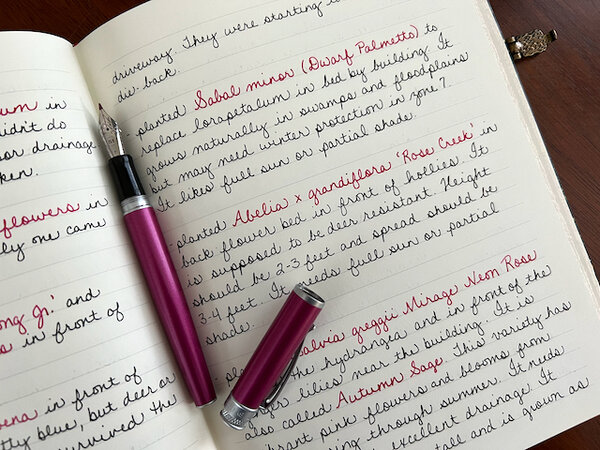 um in
didn't do
or drainage
ken.
flowers in
ly one came
ong Jr.' and
s in front of
ena in front of
tty blue, but deer or
survived the
driveway. They were starting to
die back.
- planted Sabal minor (Dwarf Palmetto) to
replace loropetalum in bed by building. It
grows naturally in swamps and floodplains
but may need winter protection in zone 7.
It likes full sun or partial shade.
- planted Abelia x grandiflora 'Rose Creek' in
back flower bed in front of hollies. It
is supposed to be deer resistant. Height
should be 2-3 feet and spread should be
3-4 feet. It needs full sun or partial
shade.
- pla Salvia greggii Mirage Neon Rose
the hydrangea and in front of the
lilies near the building. It is
also called Autumn Sage. This variety has
brant pink flowers and blooms from
ring through summer. It needs
excellent drainage. It
tall and is grown as